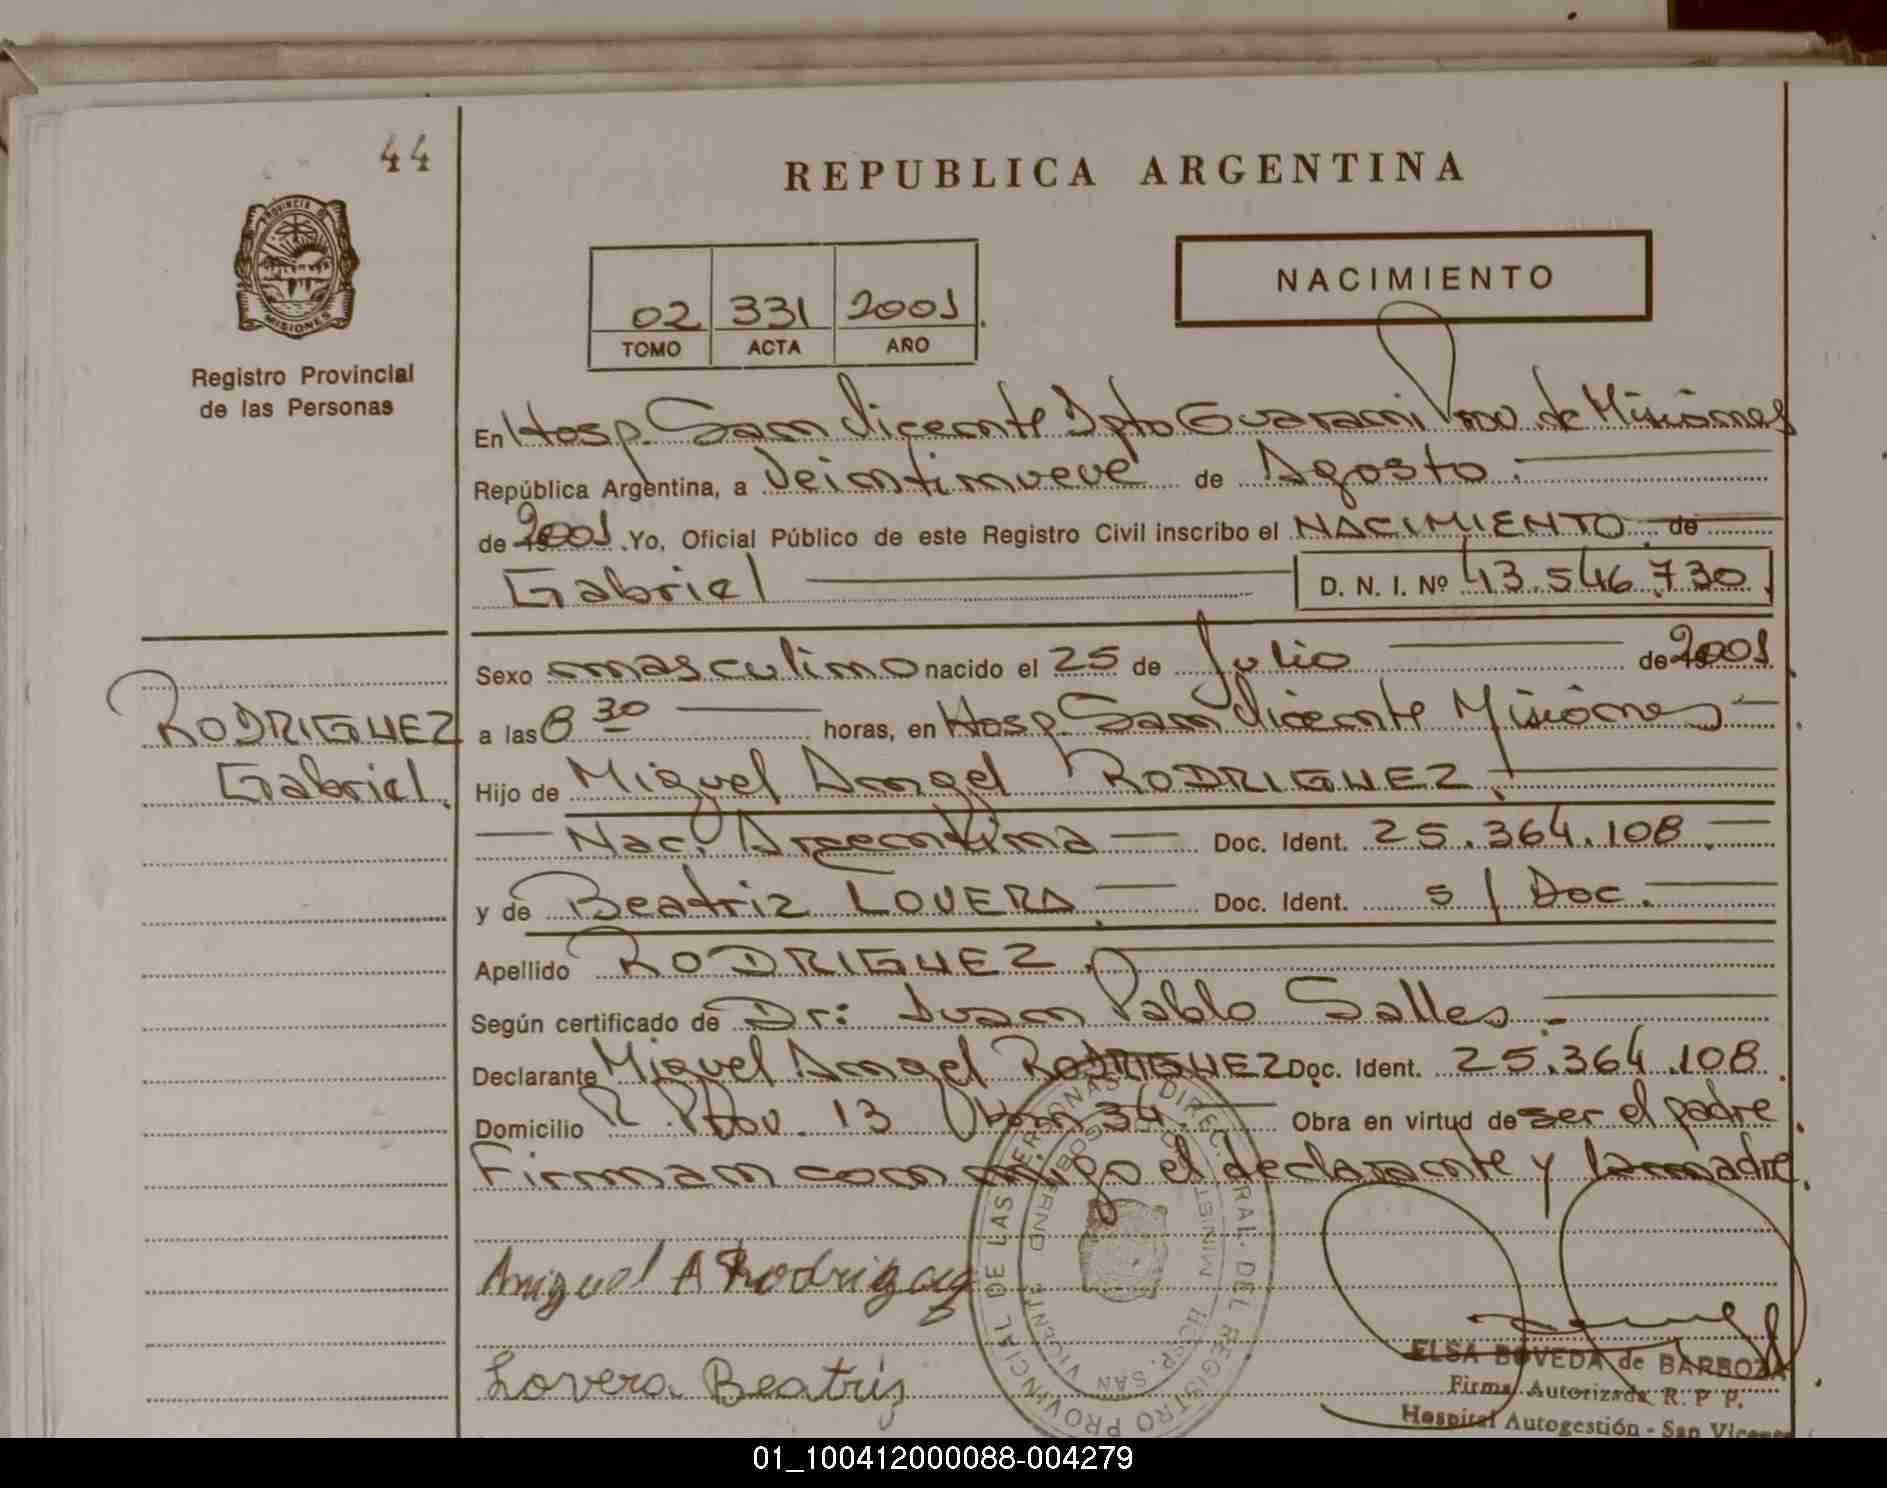 44
REPUBLICA ARGENTINA
PROVINCIA DE
MISIONES
Registro Provincial
de las Personas
02 331 2001
TOMO ACTA AÑO
NACIMIENTO
En Hosp. San Vicente Dpto Guarani Prov. de Misiones
República Argentina, a Veintinueve de Agosto
de 2001 Yo, Oficial Público de este Registro Civil inscribo el NACIMIENTO de
Gabriel D. N. I. Nº 43.546.730
Sexo masculino nacido el 25 de Julio de 2001
RODRIGUEZ
Gabriel
a las 8 30 horas, en Hosp. San Vicente Misiones
Hijo de Miguel Angel RODRIGUEZ
Nac. Argentina Doc. Ident. 25.364.108
y de Beatriz LOVERA Doc. Ident. s/Doc.
Apellido RODRIGUEZ
Según certificado de Dr: Juan Pablo Salles
Declarante Miguel Angel RODRIGUEZ Doc. Ident. 25.364.108
Domicilio R. Prov. 13 Km 34. Obra en virtud de ser el padre.
Firman conmigo el declarante y la madre.
Miguel A Rodriguez
Lovera Beatris
DIREC. GRAL. DEL REGISTRO PROVINCIAL DE LAS PERSONAS
HOSP. SAN VICENTE
ELSA BOVEDA de BARBOZA
Firma Autorizada R. P. P.
Hospital Autogestión - San Vicente
01_100412000088-004279